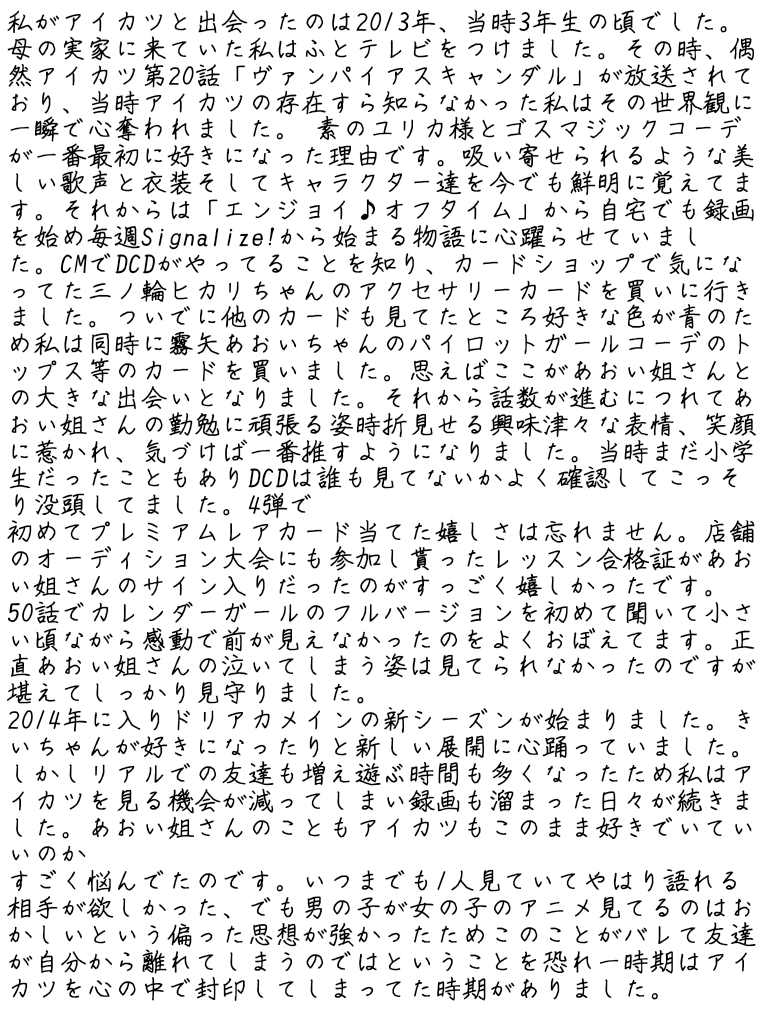 私がアイカツと出会ったのは2013年、当時3年生の頃でした。
母の実家に来ていた私はふとテレビをつけました。その時、偶
然アイカツ第20話「ヴァンパイアスキャンダル」が放送されて
おり、当時アイカツの存在すら知らなかった私はその世界観に
一瞬で心奪われました。 素のユリカ様とゴスマジックコーデ
が一番最初に好きになった理由です。吸い寄せられるような美
しい歌声と衣装そしてキャラクター達を今でも鮮明に覚えてま
す。それからは「エンジョイ♪オフタイム」から自宅でも録画
を始め毎週Signalize!から始まる物語に心躍らせていまし
た。CMでDCDがやってることを知り、カードショップで気にな
ってた三ノ輪ヒカリちゃんのアクセサリーカードを買いに行き
ました。ついでに他のカードも見てたところ好きな色が青のた
め私は同時に霧矢あおいちゃんのパイロットガールコーデのト
ップス等のカードを買いました。思えばここがあおい姐さんと
の大きな出会いとなりました。それから話数が進むにつれてあ
おい姐さんの勤勉に頑張る姿時折見せる興味津々な表情、笑顔
に惹かれ、気づけば一番推すようになりました。当時まだ小学
生だったこともありDCDは誰も見てないかよく確認してこっそ
り没頭してました。4弾で
初めてプレミアムレアカード当てた嬉しさは忘れません。店舗
のオーディション大会にも参加し貰ったレッスン合格証があお
い姐さんのサイン入りだったのがすっごく嬉しかったです。
50話でカレンダーガールのフルバージョンを初めて聞いて小さ
い頃ながら感動で前が見えなかったのをよくおぼえてます。正
直あおい姐さんの泣いてしまう姿は見てられなかったのですが
堪えてしっかり見守りました。
2014年に入りドリアカメインの新シーズンが始まりました。き
いちゃんが好きになったりと新しい展開に心踊っていました。
しかしリアルでの友達も増え遊ぶ時間も多くなったため私はア
イカツを見る機会が減ってしまい録画も溜まった日々が続きま
した。あおい姐さんのこともアイカツもこのまま好きでいてい
いのか
すごく悩んでたのです。いつまでも1人見ていてやはり語れる
相手が欲しかった、でも男の子が女の子のアニメ見てるのはお
かしいという偏った思想が強かったためこのことがバレて友達
が自分から離れてしまうのではということを恐れ一時期はアイ
カツを心の中で封印してしまってた時期がありました。